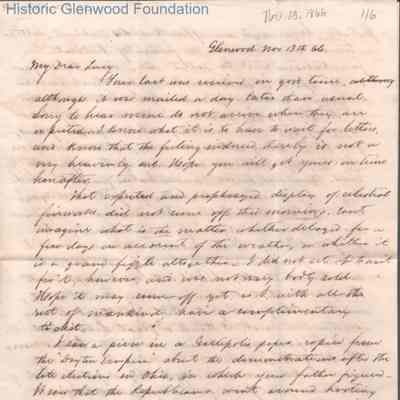 Historic Glenwood Foundation
Nov. 13, 1866
1/6
Glenwood Nov 13th 66.
My Dear Lucy
Your last was received in good time, although
although it was mailed a day later than usual.
Sorry to hear mine do not arrive when they are
expected. I know what it is to have to wait for letters,
and know that the feeling induced thereby is not a
very heavenly one. Hope you will get yours on time
hereafter.
That expected and prophesyed display of celestial
fireworks did not come off this morning. Cant
imagine what is the matter whether delayed for a
few days on account of the weather, or whether it
is a grand fizzle altogether. I did not set up to wait
for it, however, and was not very badly sold.
Hope it may come off yet as I, with all the
rest of mankind, have a complimentary
ticket.
I saw a piece in a Gallipolis paper copied from
the "Dayton Empire" about the demonstrations after the
late elections in Ohio, in which your father figured.
It says that the Republicans went around hooting